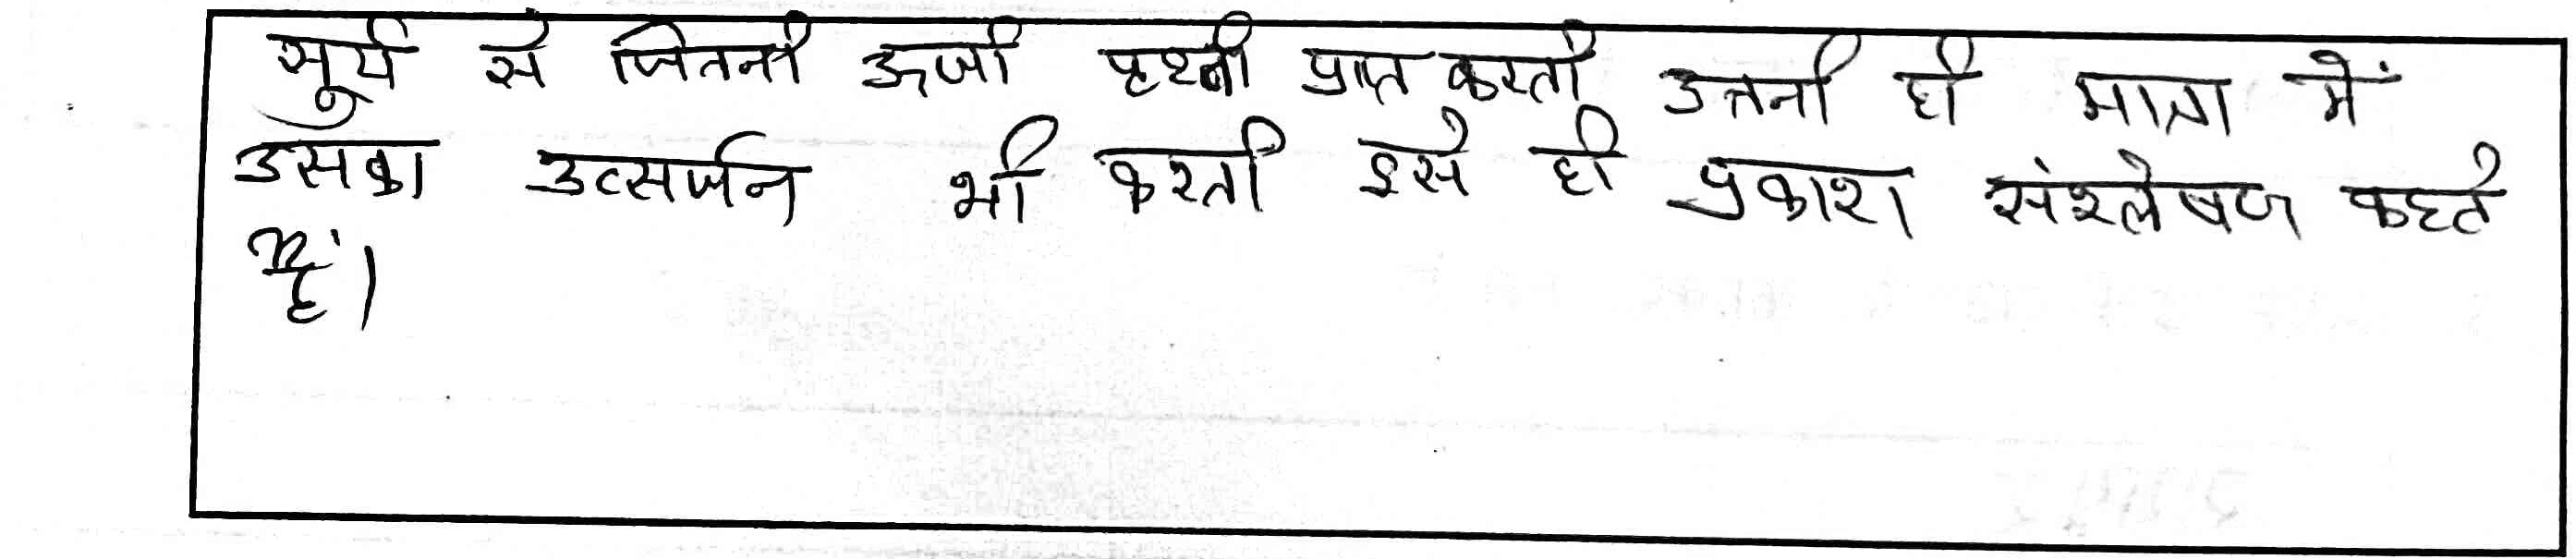 सूर्य से जितनी ऊर्जा पृथ्वी प्राप्त करती उतनी ही मात्रा में
उसका उत्सर्जन भी करती इसे ही प्रकाश संश्लेषण कहते
हैं।